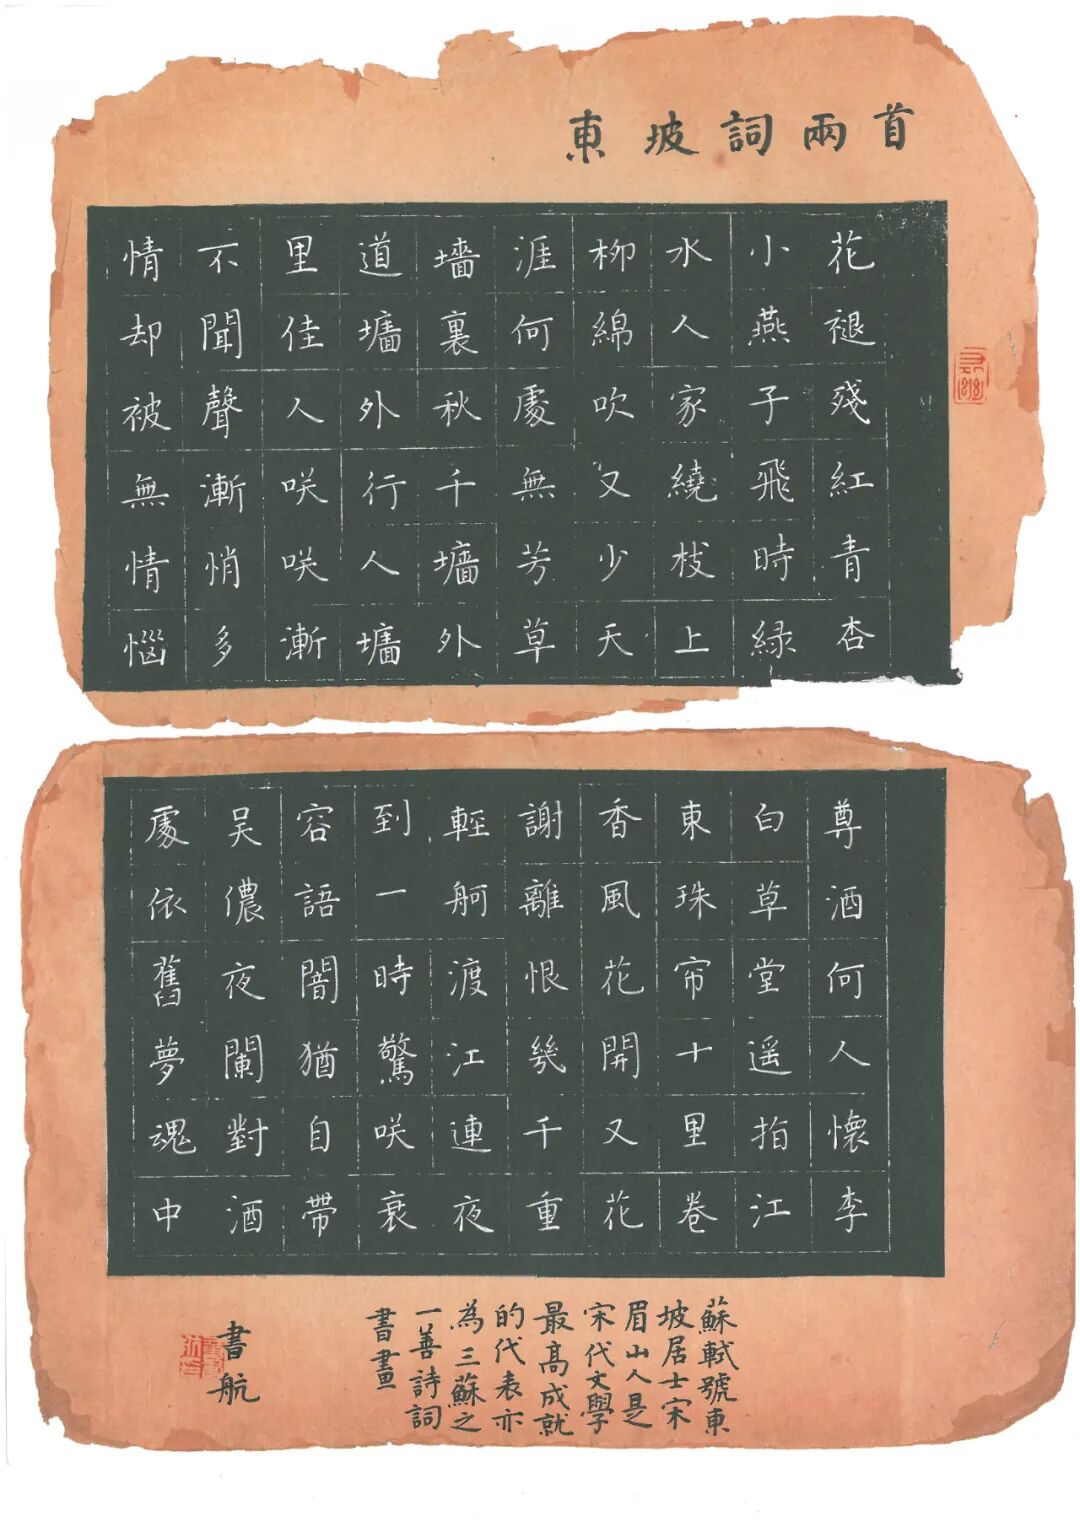 東坡詞兩首
花褪殘紅青杏
小燕子飛時緑
水人家繞枝上
柳綿吹又少天
涯何處無芳草
墻裏秋千墻外
道墻外行人墻
里佳人咲咲漸
不聞聲漸悄多
情却被無情惱
尊酒何人懷李
白草堂遥指江
東珠帘十里卷
香風花開又花
謝離恨幾千重
輕舸渡江連夜
到一時驚咲衰
容語闇猶自帶
吴儂夜闌對酒
處依舊夢魂中
蘇軾號東
坡居士宋
眉山人是
宋代文學
最高成就
的代表亦
為三蘇之
一善詩詞
書畫
書航